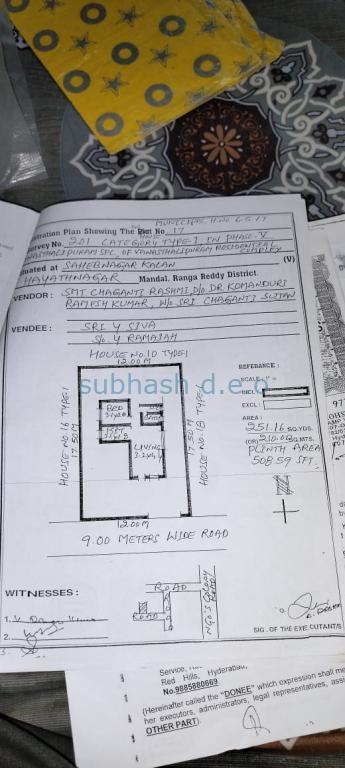 MUNICIPAL H.No 6-5-17
Registration Plan Shewing The Plot House No. 17
Survey No. 201 CATEGORY TYPE-I, IN PHASE-V
VANASTHALIPURAM SEC, OF VANASTHALIPURAM RESIDENTIAL COMPLEX
Situated at SAHEBNAGAR KALAN (V)
HAYATHNAGAR Mandal. Ranga Reddy District.
VENDOR: SMT. CHAGANTI RASHMI, D/o. DR KOMANDURI
RAMESH KUMAR, W/o. SRI CHAGANTI
VENDEE: SRI Y SIVA
S/o. Y RAMAIAH
HOUSE No. 10 TYPE-I
12.00M
HOUSE No. 16 TYPE-I
17.50M
BED
LIVING
17.50M
HOUSE No. 18 TYPE-I
12.00M
9.00 METERS WIDE ROAD
REFERANCE:
SCALE: 1" =
INCL:
EXCL:
AREA:
251.16 SQ.YDS.
(OR) 210.00 SQ.MTS.
PLINTH AREA
508.59 SFT.
subhash d.e.o
WITNESSES:
1.
2.
3.
ROAD
ROAD
NGO'S COLONY ROAD
SIG. OF THE EXECUTANT/S
Red Hills, Hyderabad,
No.9885880669.
(Hereinafter called the "DONEE" which expression shall me
her executors, administrators, legal representatives, ass
OTHER PART).